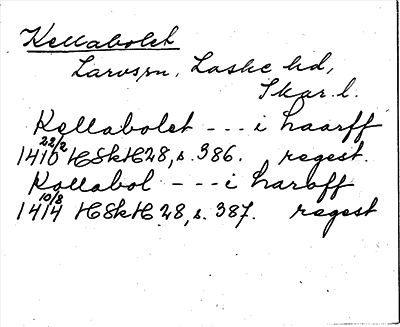 Kellabolet
Larvs sn, Laske hd,
Skar. l.
Kellabolet --- i haarff
22/2
1410 HSkH 28, s. 386. regest.
Kollabol --- i haroff
10/8
1414 HSkH 28, s. 387. regest